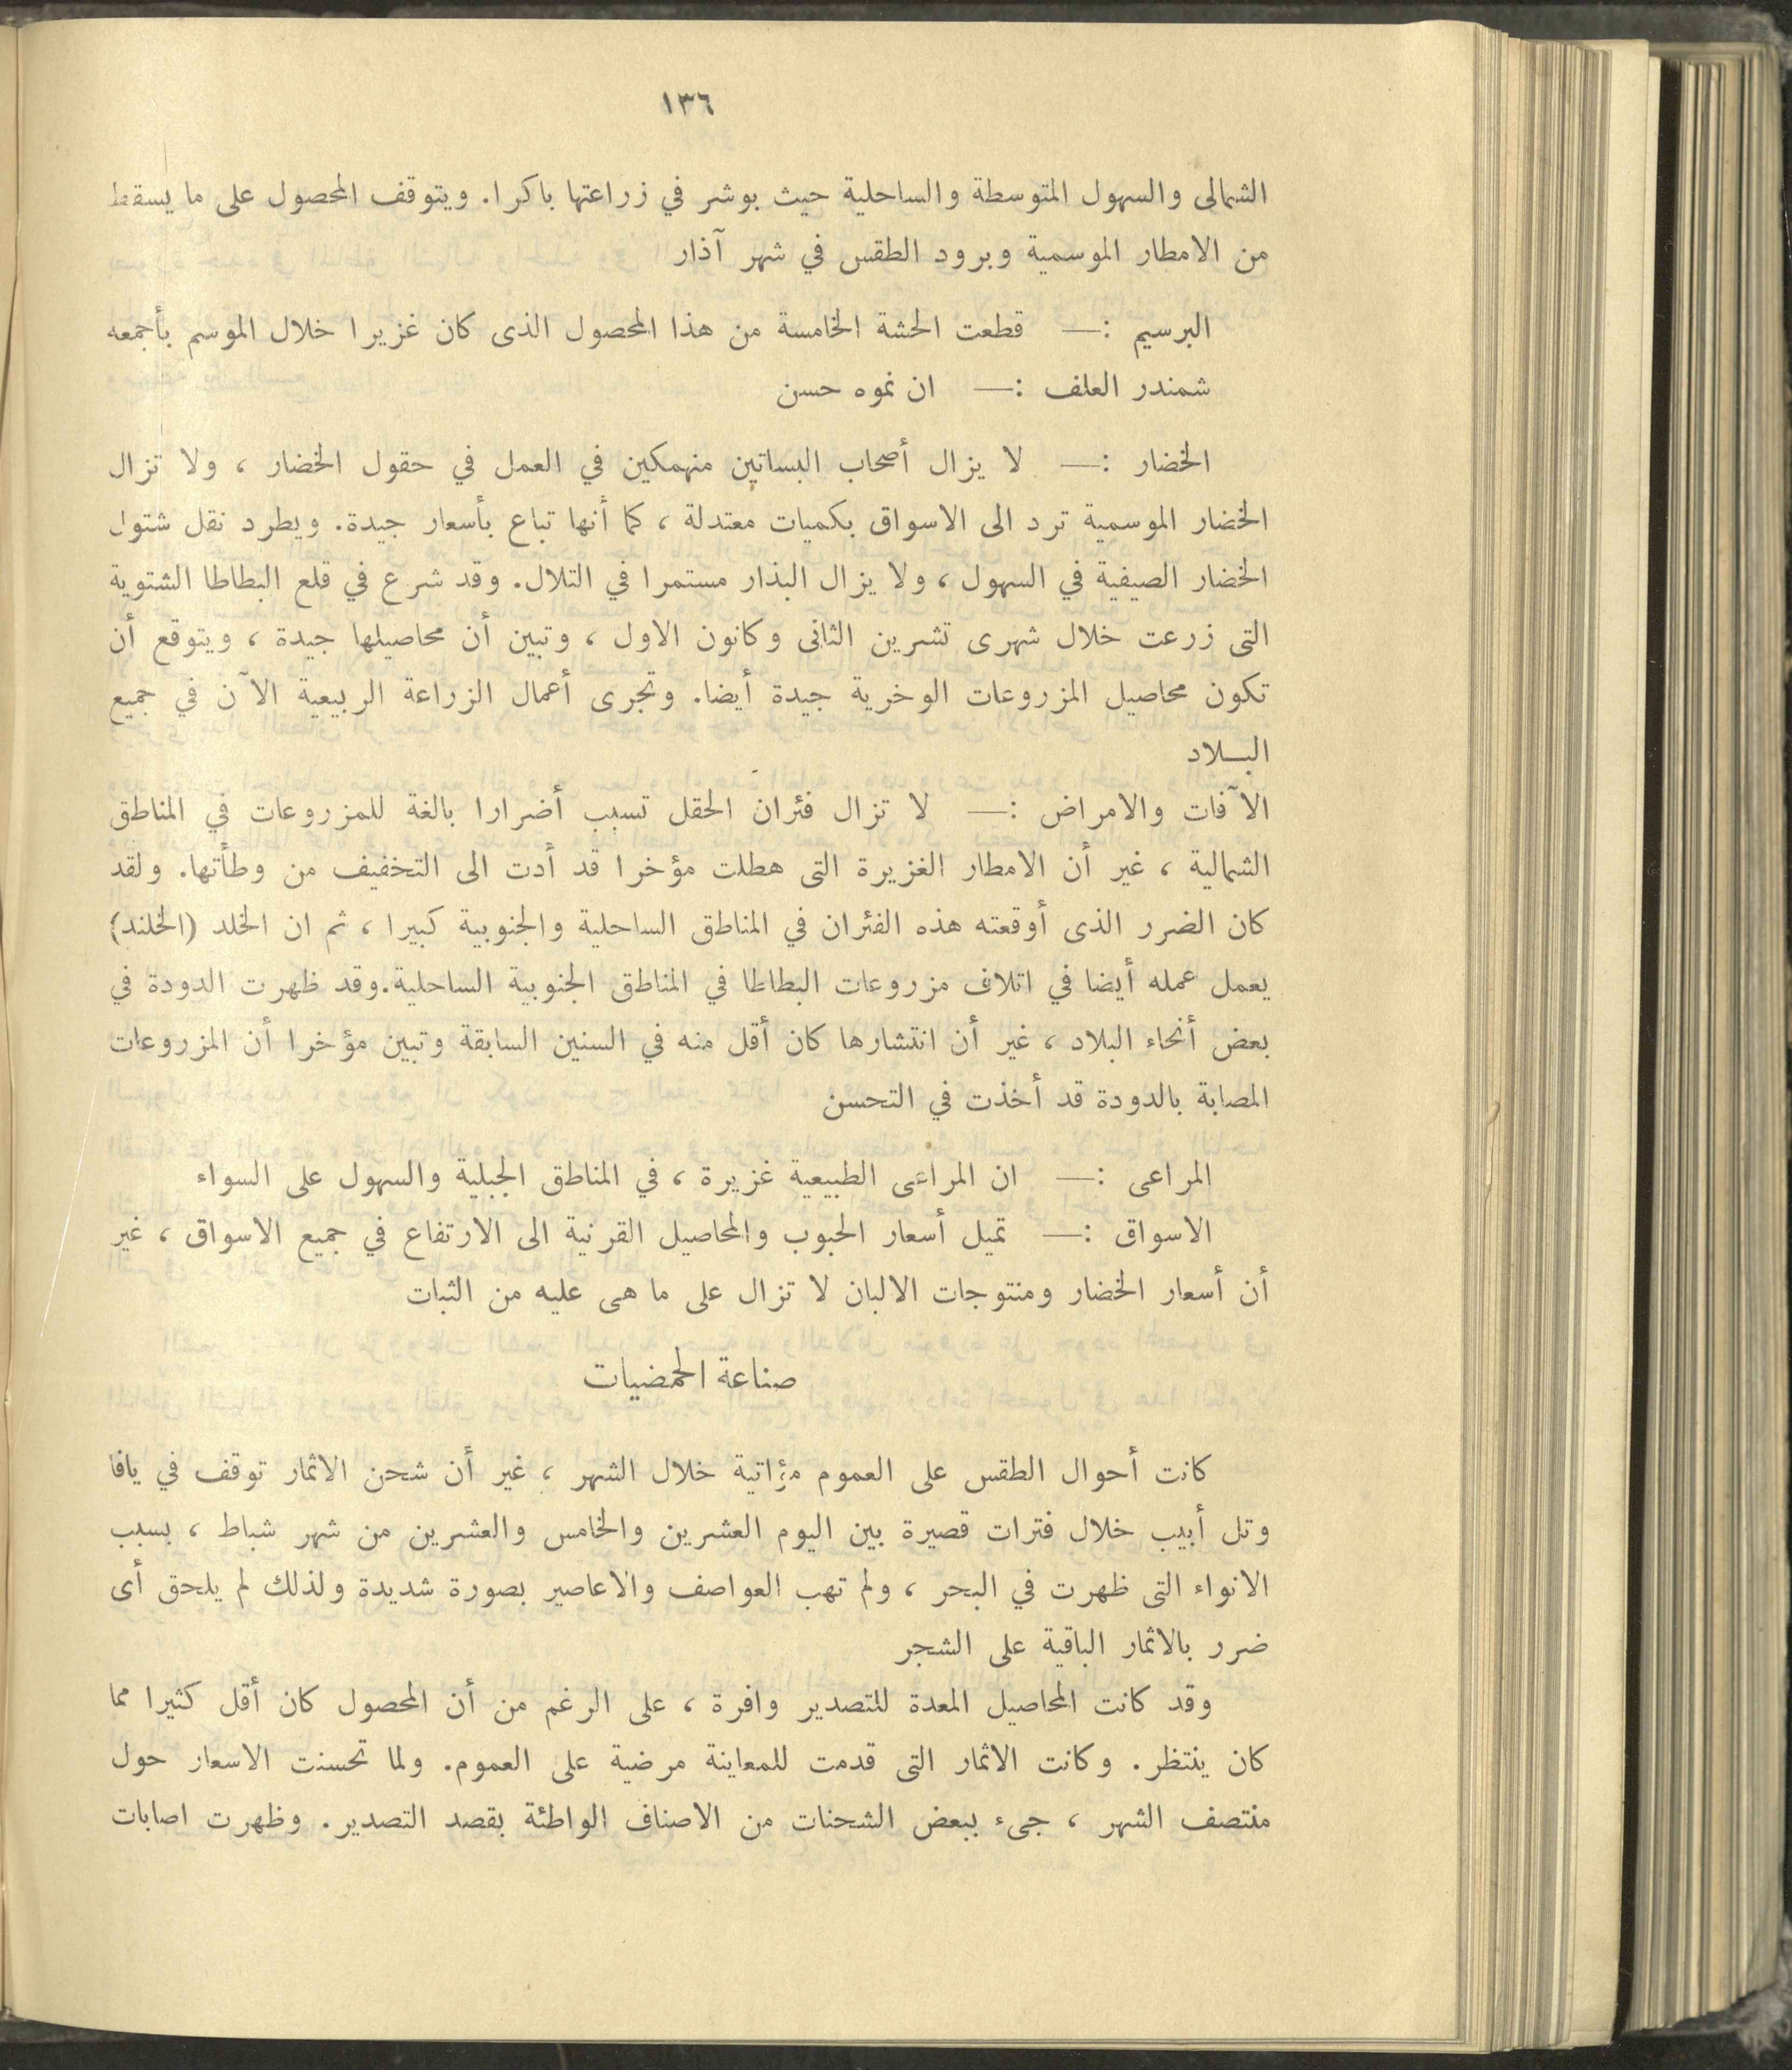 ١٣٦
الشمالى والسهول المتوسطة والساحلية حيث بوشر في زراعتها باكرا. ويتوقف المحصول على ما يسقط
من الامطار الموسمية وبرود الطقس في شهر آذار
البرسيم :— قطعت الحشة الخامسة من هذا المحصول الذى كان غزيرا خلال الموسم بأجمعه
شمندر العلف :— ان نموه حسن
الخضار :— لا يزال أصحاب البساتين منهمكين في العمل في حقول الخضار ، ولا تزال
الخضار الموسمية ترد الى الاسواق بكميات معتدلة ، كما أنها تباع بأسعار جيدة. ويطرد نقل شتول
الخضار الصيفية في السهول ، ولا يزال البذار مستمرا في التلال. وقد شرع في قلع البطاطا الشتوية
التى زرعت خلال شهرى تشرين الثانى وكانون الاول ، وتبين أن محاصيلها جيدة ، ويتوقع أن
تكون محاصيل المزروعات الوخرية جيدة أيضا. وتجرى أعمال الزراعة الربيعية الآن في جميع
البـلاد
الآفات والامراض :— لا تزال فئران الحقل تسبب أضرارا بالغة للمزروعات في المناطق
الشمالية ، غير أن الامطار الغزيرة التى هطلت مؤخرا قد أدت الى التخفيف من وطأتها. ولقد
كان الضرر الذى أوقعته هذه الفئران في المناطق الساحلية والجنوبية كبيرا ، ثم ان الخلد (الخلند)
يعمل عمله أيضا في اتلاف مزروعات البطاطا في المناطق الجنوبية الساحلية.وقد ظهرت الدودة في
بعض أنحاء البلاد ، غير أن انتشارها كان أقل منه في السنين السابقة وتبين مؤخرا أن المزروعات
المصابة بالدودة قد أخذت في التحسن
المراعى :— ان المراعى الطبيعية غزيرة ، في المناطق الجبلية والسهول على السواء
الاسواق :— تميل أسعار الحبوب والمحاصيل القرنية الى الارتفاع في جميع الاسواق ، غير
أن أسعار الخضار ومنتوجات الالبان لا تزال على ما هى عليه من الثبات
صناعة الحمضيات
كانت أحوال الطقس على العموم مؤاتية خلال الشهر ، غير أن شحن الاثمار توقف في يافا
وتل أبيب خلال فترات قصيرة بين اليوم العشرين والخامس والعشرين من شهر شباط ، بسبب
الانواء التى ظهرت في البحر ، ولم تهب العواصف والاعاصير بصورة شديدة ولذلك لم يلحق أى
ضرر بالاثمار الباقية على الشجر
وقد كانت المحاصيل المعدة للتصدير وافرة ، على الرغم من أن المحصول كان أقل كثيرا مما
كان ينتظر. وكانت الاثمار التى قدمت للمعاينة مرضية على العموم. ولما تحسنت الاسعار حول
منتصف الشهر ، جىء ببعض الشحنات من الاصناف الواطئة بقصد التصدير. وظهرت اصابات